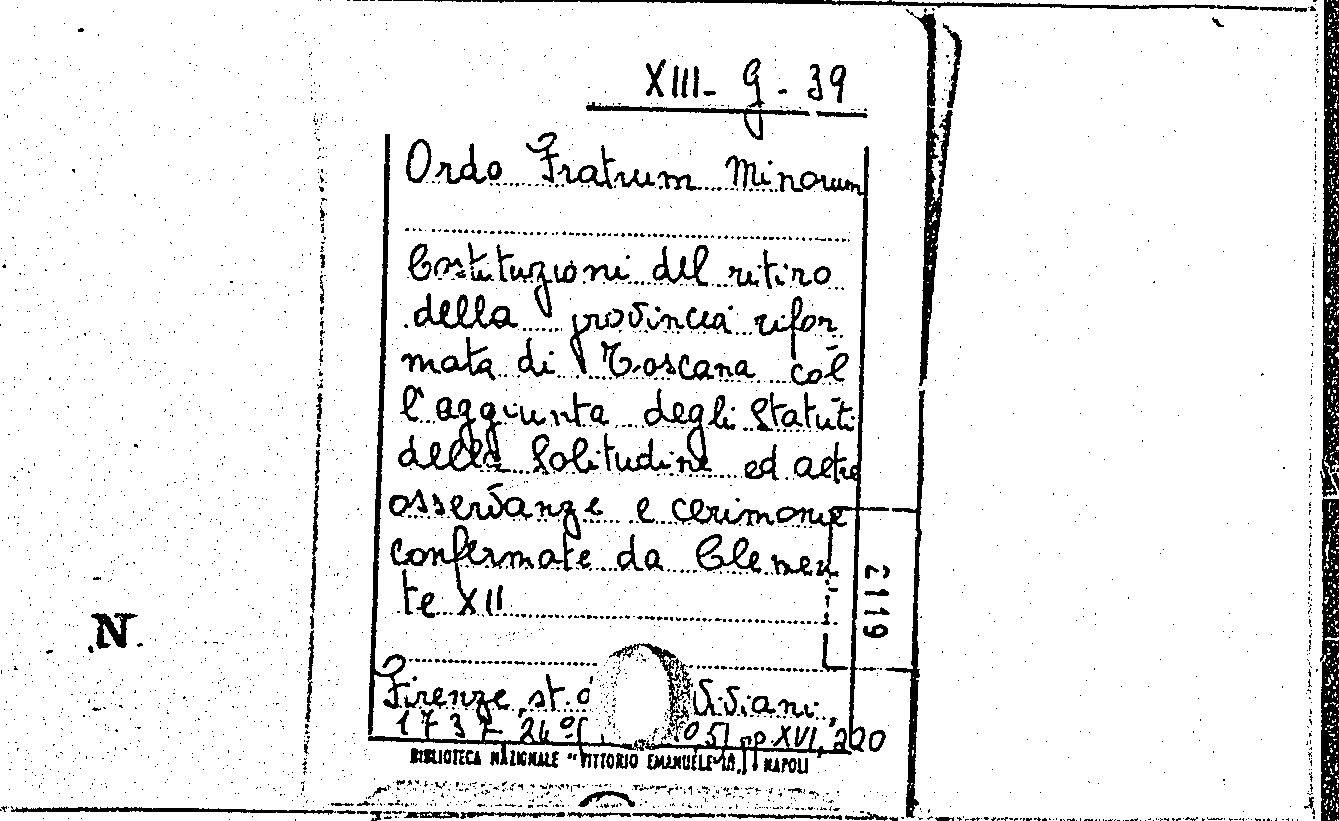 XIII- G - 39
Ordo Fratrum Minorum
Costituzioni del ritiro
della provincia rifor
mata di Toscana col
l'aggiunta degli Statuti
della Solitudine ed altre
osservanze e cerimonie
confermate da Clemen
te XII
2119
Firenze, st. Viviani,
1737 24° pp XVI, 220
BIBLIOTECA NAZIONALE "VITTORIO EMANUELE III" NAPOLI
N